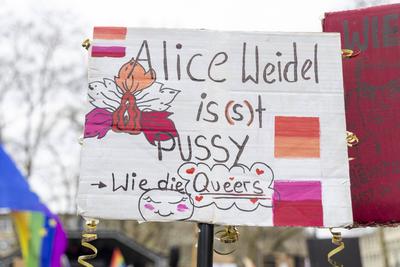 Alice Weidel
is(s)t
PUSSY
→ Wie die Queers
WIE